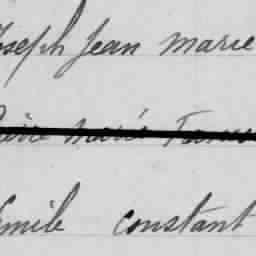 Joseph Jean Marie
Marie
Emile constant